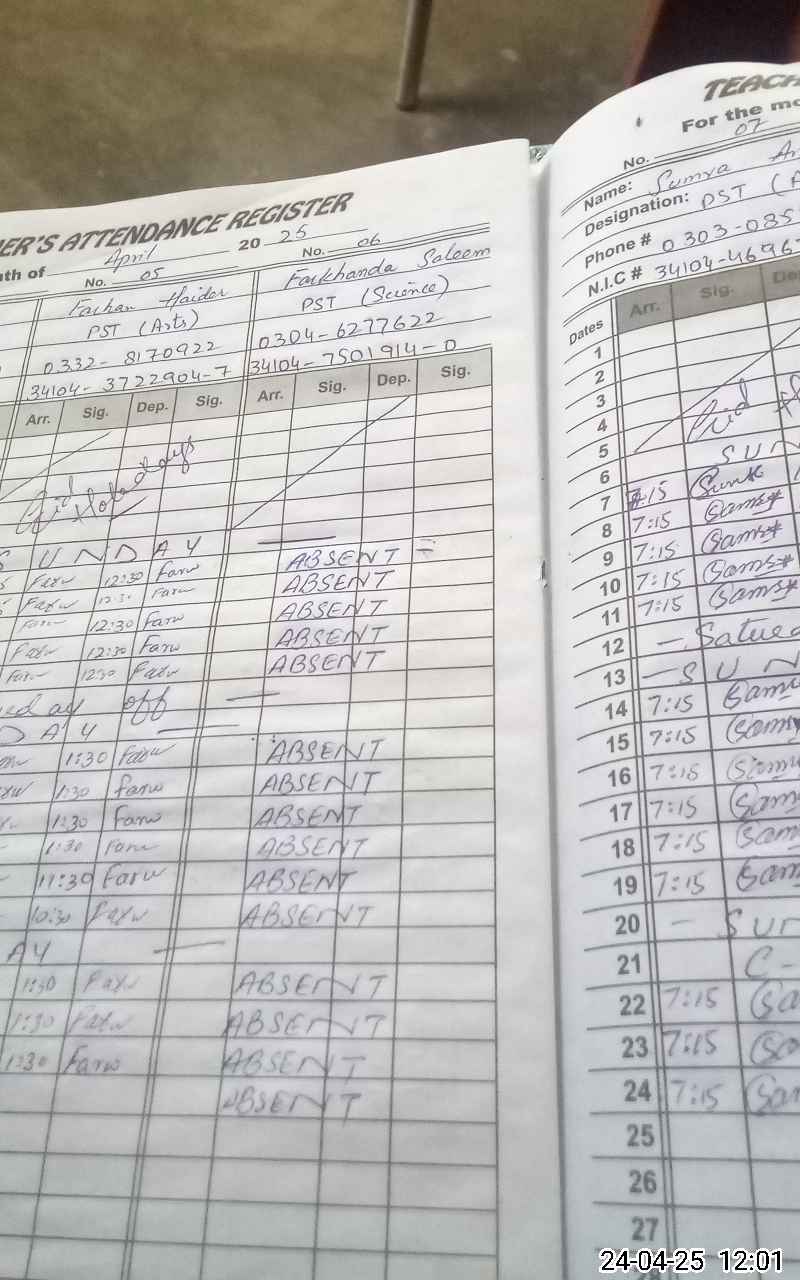 ER'S ATTENDANCE REGISTER
th of April 20 25
No. 05 No. 06
Farhan Haider Farkhanda Saleem
PST (Arts) PST (Science)
0332-8170922 0304-6277622
34104-3722904-7 34104-7501914-0
Arr. Sig. Dep. Sig. Arr. Sig. Dep. Sig.
Eid Holadays
S U N D A Y
Farw 12:30 Farw ABSENT
Farw 12:30 Farw ABSENT
Farw 12:30 Farw ABSENT
Farw 12:30 Farw ABSENT
Farw 12:30 Farw ABSENT
off
D A Y
1:30 Farw ABSENT
1:30 Farw ABSENT
1:30 Farw ABSENT
1:30 Farw ABSENT
11:30 Farw ABSENT
10:30 Farw ABSENT
A Y
1:30 Farw ABSENT
1:30 Farw ABSENT
1:30 Farw ABSENT
ABSENT
TEACH
For the mo
No. 07
Name: Sumra
Designation: PST (A
Phone # 0303-085
N.I.C # 34104-4696
Dates Arr. Sig. De
1
2
3
4
5 Eid
6 SUN
7 7:15
8 7:15 Sams*
9 7:15 Sams*
10 7:15 Sams*
11 7:15 Sams*
12 - Satur
13 - S U N
14 7:15 Sams
15 7:15 Sams
16 7:15 Sams
17 7:15 Sam
18 7:15 Sam
19 7:15 Sam
20 - SUN
21 C-
22 7:15 Sa
23 7:15 Sa
24 7:15 Sa
25
26
27
24-04-25 12:01